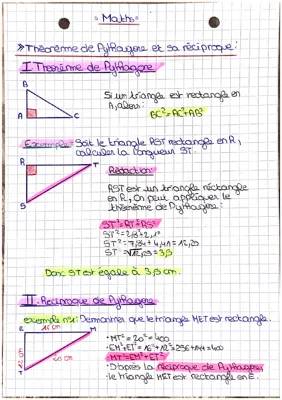 Maths
» Théorème de Pythagore et sa réciproque :
I. Théorème de Pythagore
B
Si un triangle est rectangle en
A, alors :
BC² = AC² + AB²
A C
Exemple : Soit le triangle RST rectangle en R,
calculer la longueur ST.
R T
Rédaction:
RST est un triangle rectangle
en R, on peut appliquer le
théorème de Pythagore :
S
ST² = RT² + RS²
ST² = 2,8² + 2,1²
ST² = 7,84 + 4,41 = 12,25
ST = √12,25 = 3,5
Donc ST est égale à 3,5 cm.
II. Réciproque de Pythagore
exemple n°1: Démontrer que le triangle MET est rectangle.
E 16 cm M
• MT² = 20² = 400
• EM² + ET² = 16² + 12² = 256 + 144 = 400
20 cm
• MT² = EM² + ET²
• D'après la réciproque de Pythagore,
T
• le triangle MET est rectangle en E.